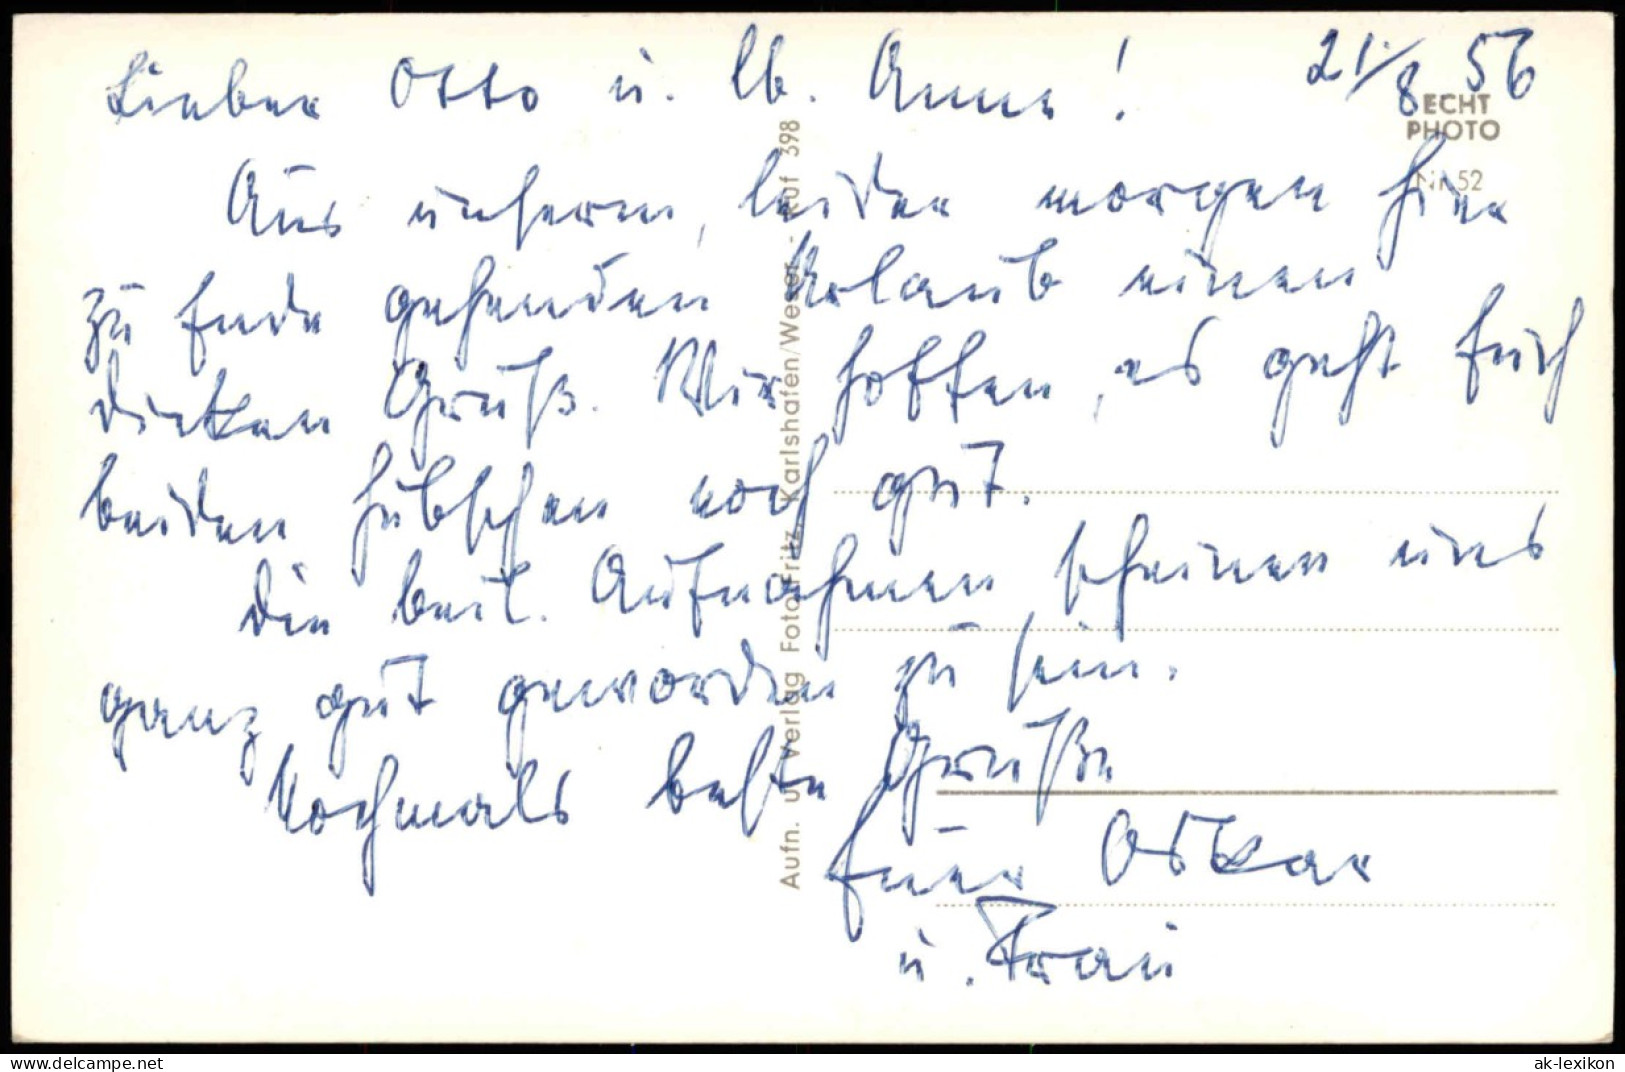 21/8 56
Lieber Otto u. lb. Anne!
Aus unserm, leider morgen hier
zu Ende gehenden Urlaub einen
dicken Gruß. Wir hoffen, es geht Euch
beiden hübschen noch gut.
Die beil. Aufnahmen scheinen uns
ganz gut geworden zu sein.
Nochmals beste Grüße
Euer Oskar
u. Frau
ECHT
PHOTO
Nr. 52
Aufn. u. Verlag Foto-Fritz, Karlshafen/Weser - Ruf 398
www.delcampe.net
ak-lexikon